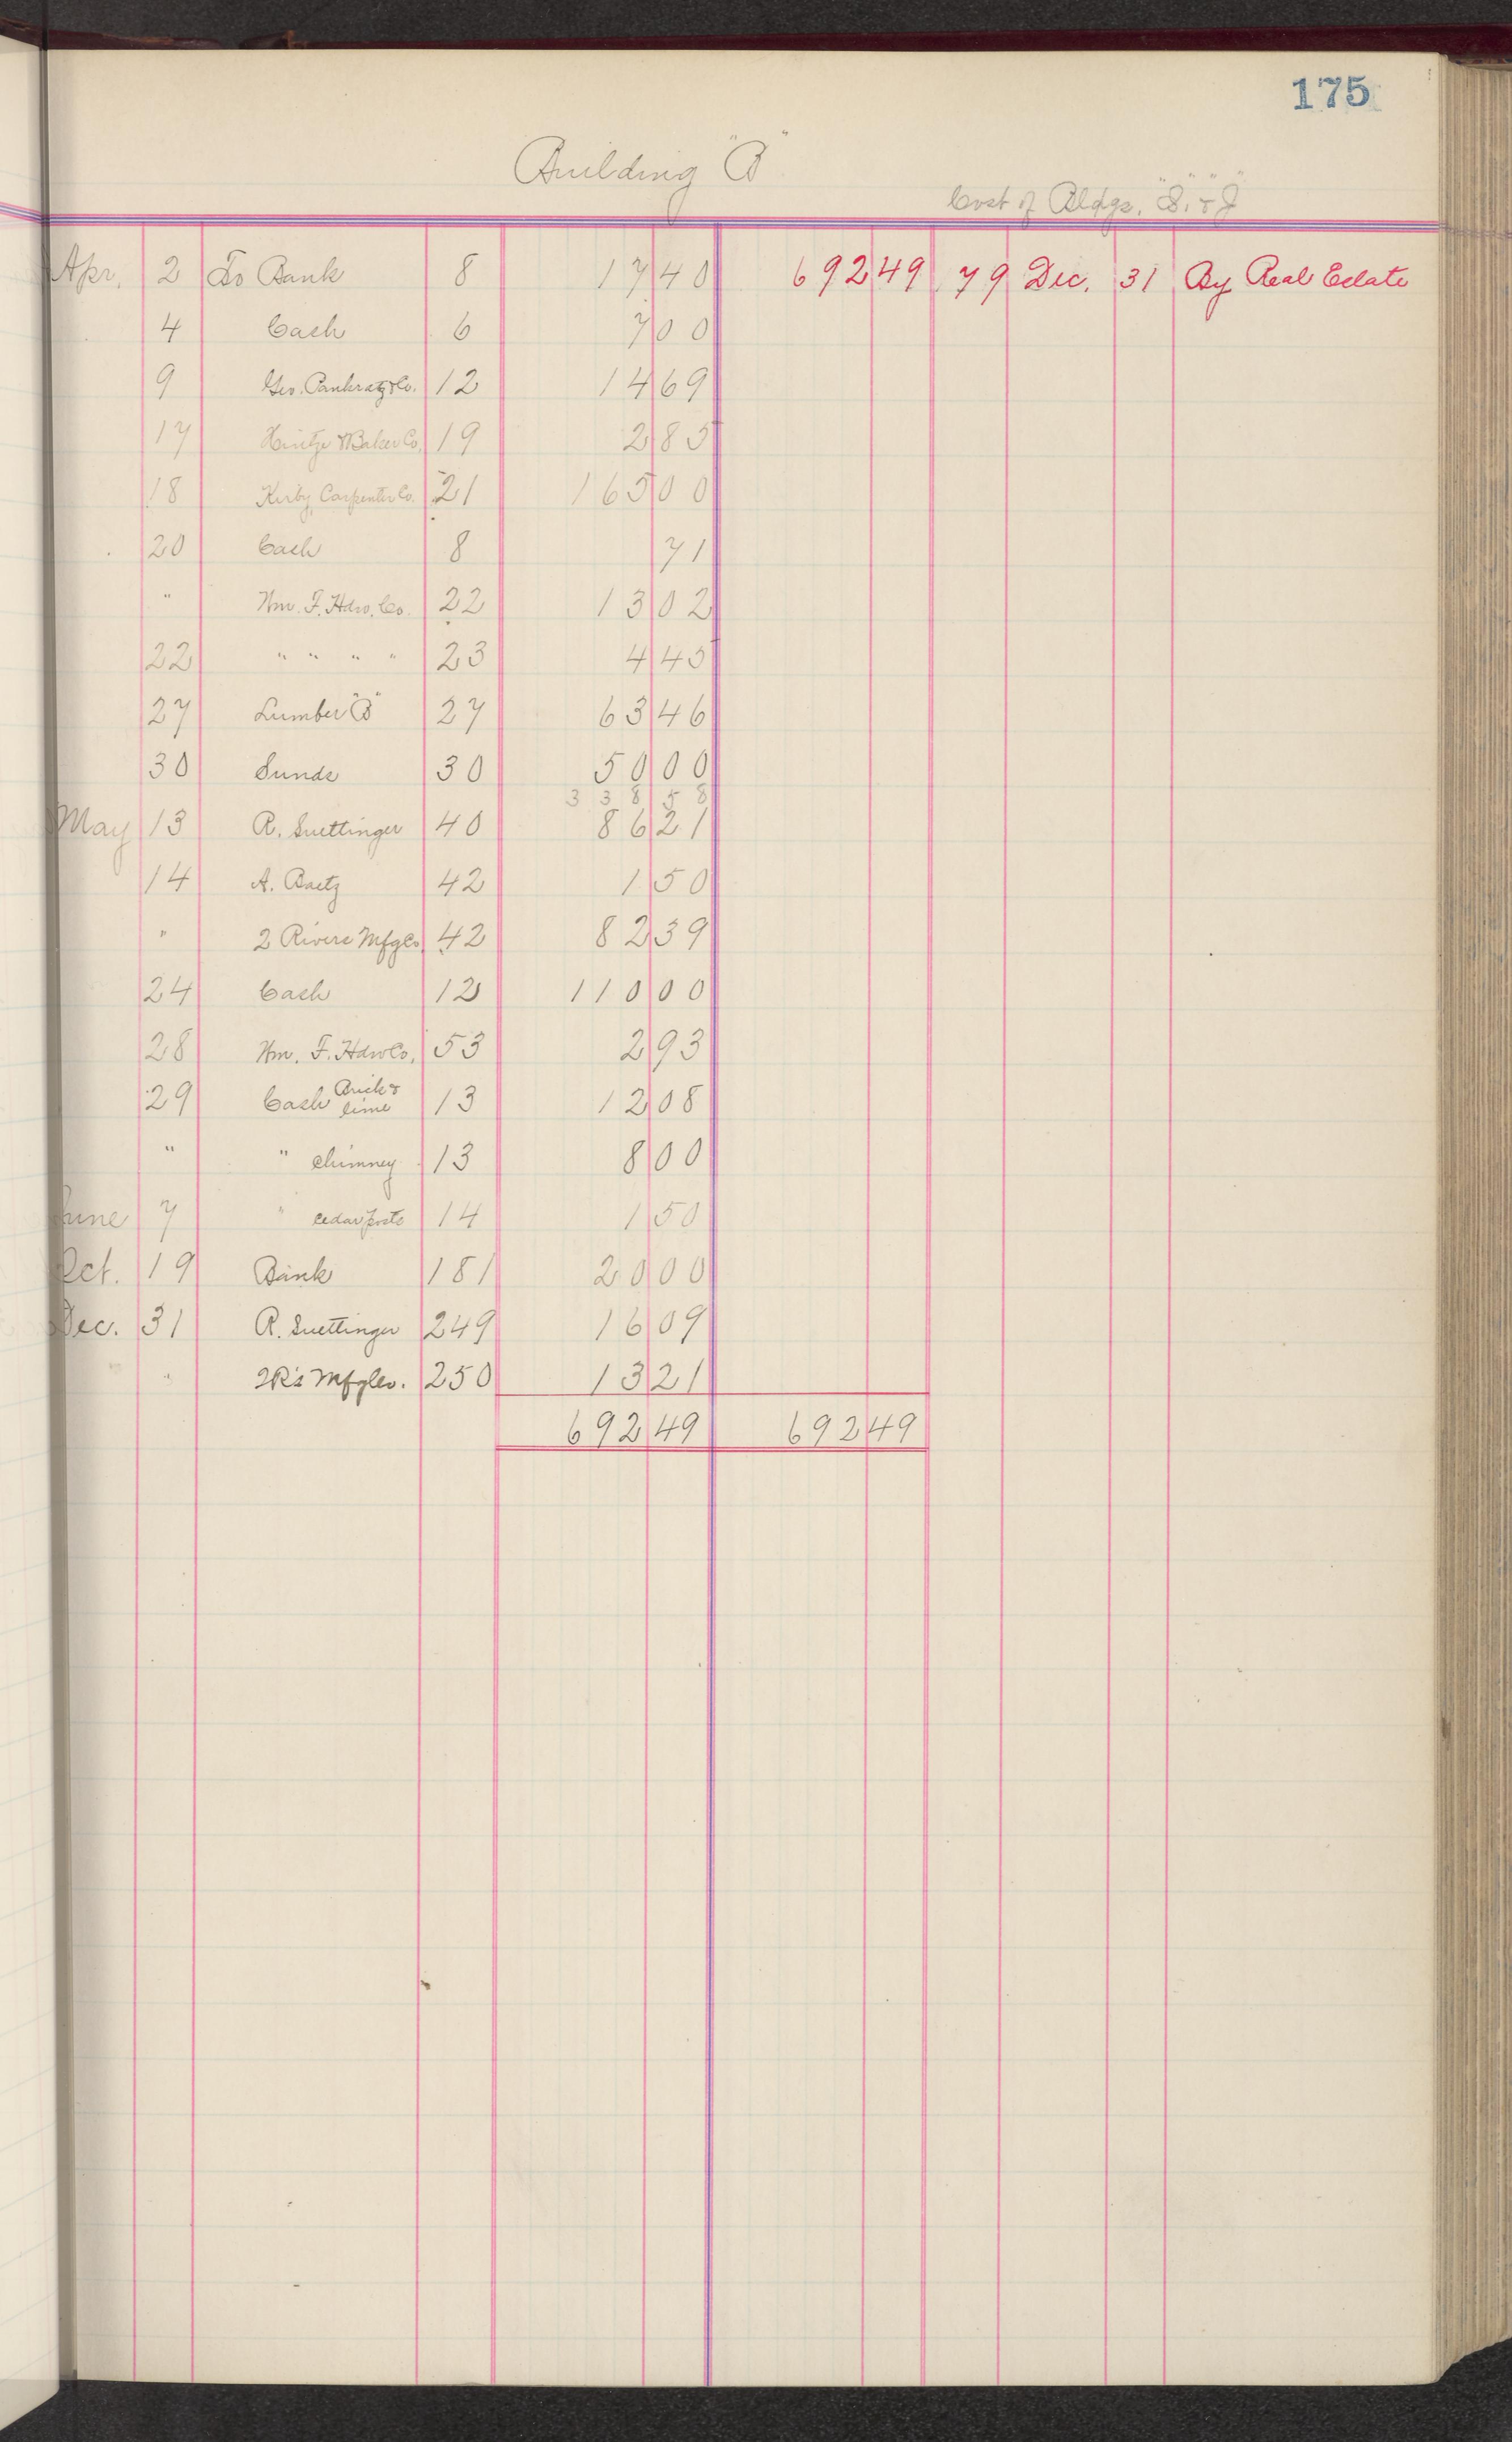 175
Building "B"
Cost of Bldgs. "I" & "J"
Apr. 2 To Bank 8 17 40 692 49 79 Dec. 31 By Real Estate
4 Cash 6 7 00
9 Geo. Pankratz & Co. 12 14 69
17 Hintze & Baker Co. 19 2 85
18 Kirby Carpenter Co. 21 165 00
20 Cash 8 71
" Wm. F. Hdw. Co. 22 13 02
22 " " " " 23 4 45
27 Lumber "B" 27 63 46
30 Sunds 30 50 00
338 58
May 13 R. Suettinger 40 86 21
14 A. Baetz 42 1 50
" 2 Rivers Mfg Co 42 82 39
24 Cash 12 110 00
28 Wm. F. Hdw Co. 53 2 93
29 Cash Brick & lime 13 12 08
" " chimney 13 8 00
June 7 " cedar posts 14 1 50
Oct. 19 Bank 181 20 00
Dec. 31 R. Suettinger 249 16 09
" 2R's Mfg Co. 250 13 21
692 49 692 49